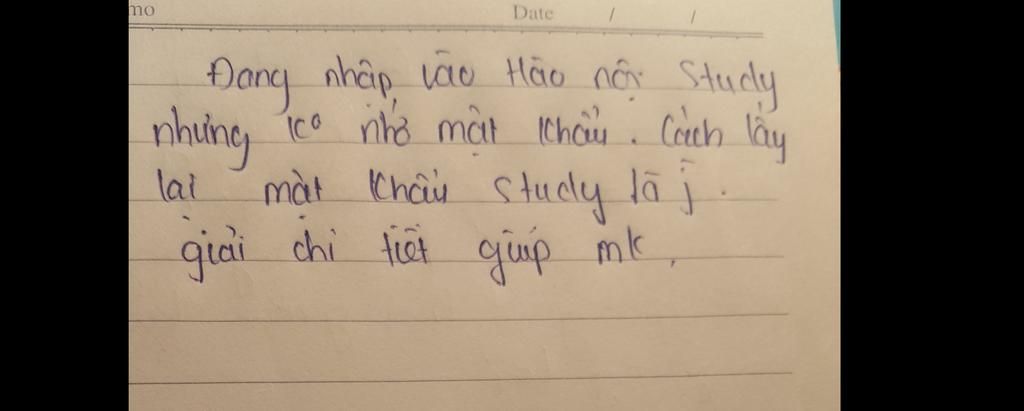 mo Date / /
Đang nhập vào Hão nội Study
nhưng ko nhớ mật khẩu. Cách lấy
lại mật khẩu study là j.
giải chi tiết giúp mk.